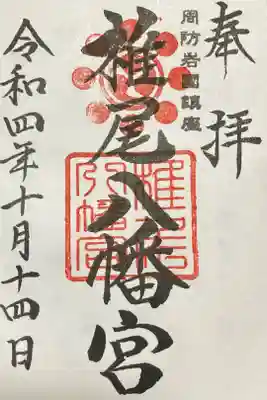 奉拝
周防岩國鎮座
椎尾八幡宮
椎尾
八幡宮
令和四年十月十四日